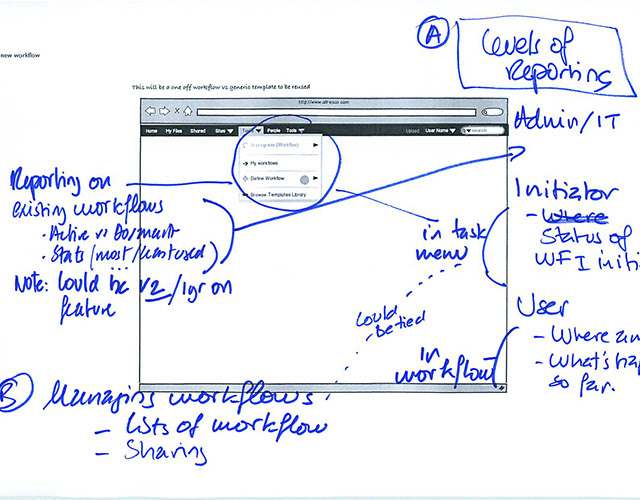 new workflow
This will be a one off workflow vs generic template to be reused
http://www.alfresco.com
Home My Files Shared Sites Tasks People Tools Upload User Name search
In progress (Workflow)
My workflows
Define Workflow
Browse Templates Library
A
Levels of
Reporting
Admin/IT
Reporting on
existing workflows
• Active vs Dormant
• Stats (most/least used)
Note: Could be v2/1yr on
feature
Initiator
- Where
Status of
WF I initi
in task
menu
User
- Where am
- What's hap
so far.
Could
be tied
in
workflow
B Managing workflows
- Lists of workflow
- Sharing